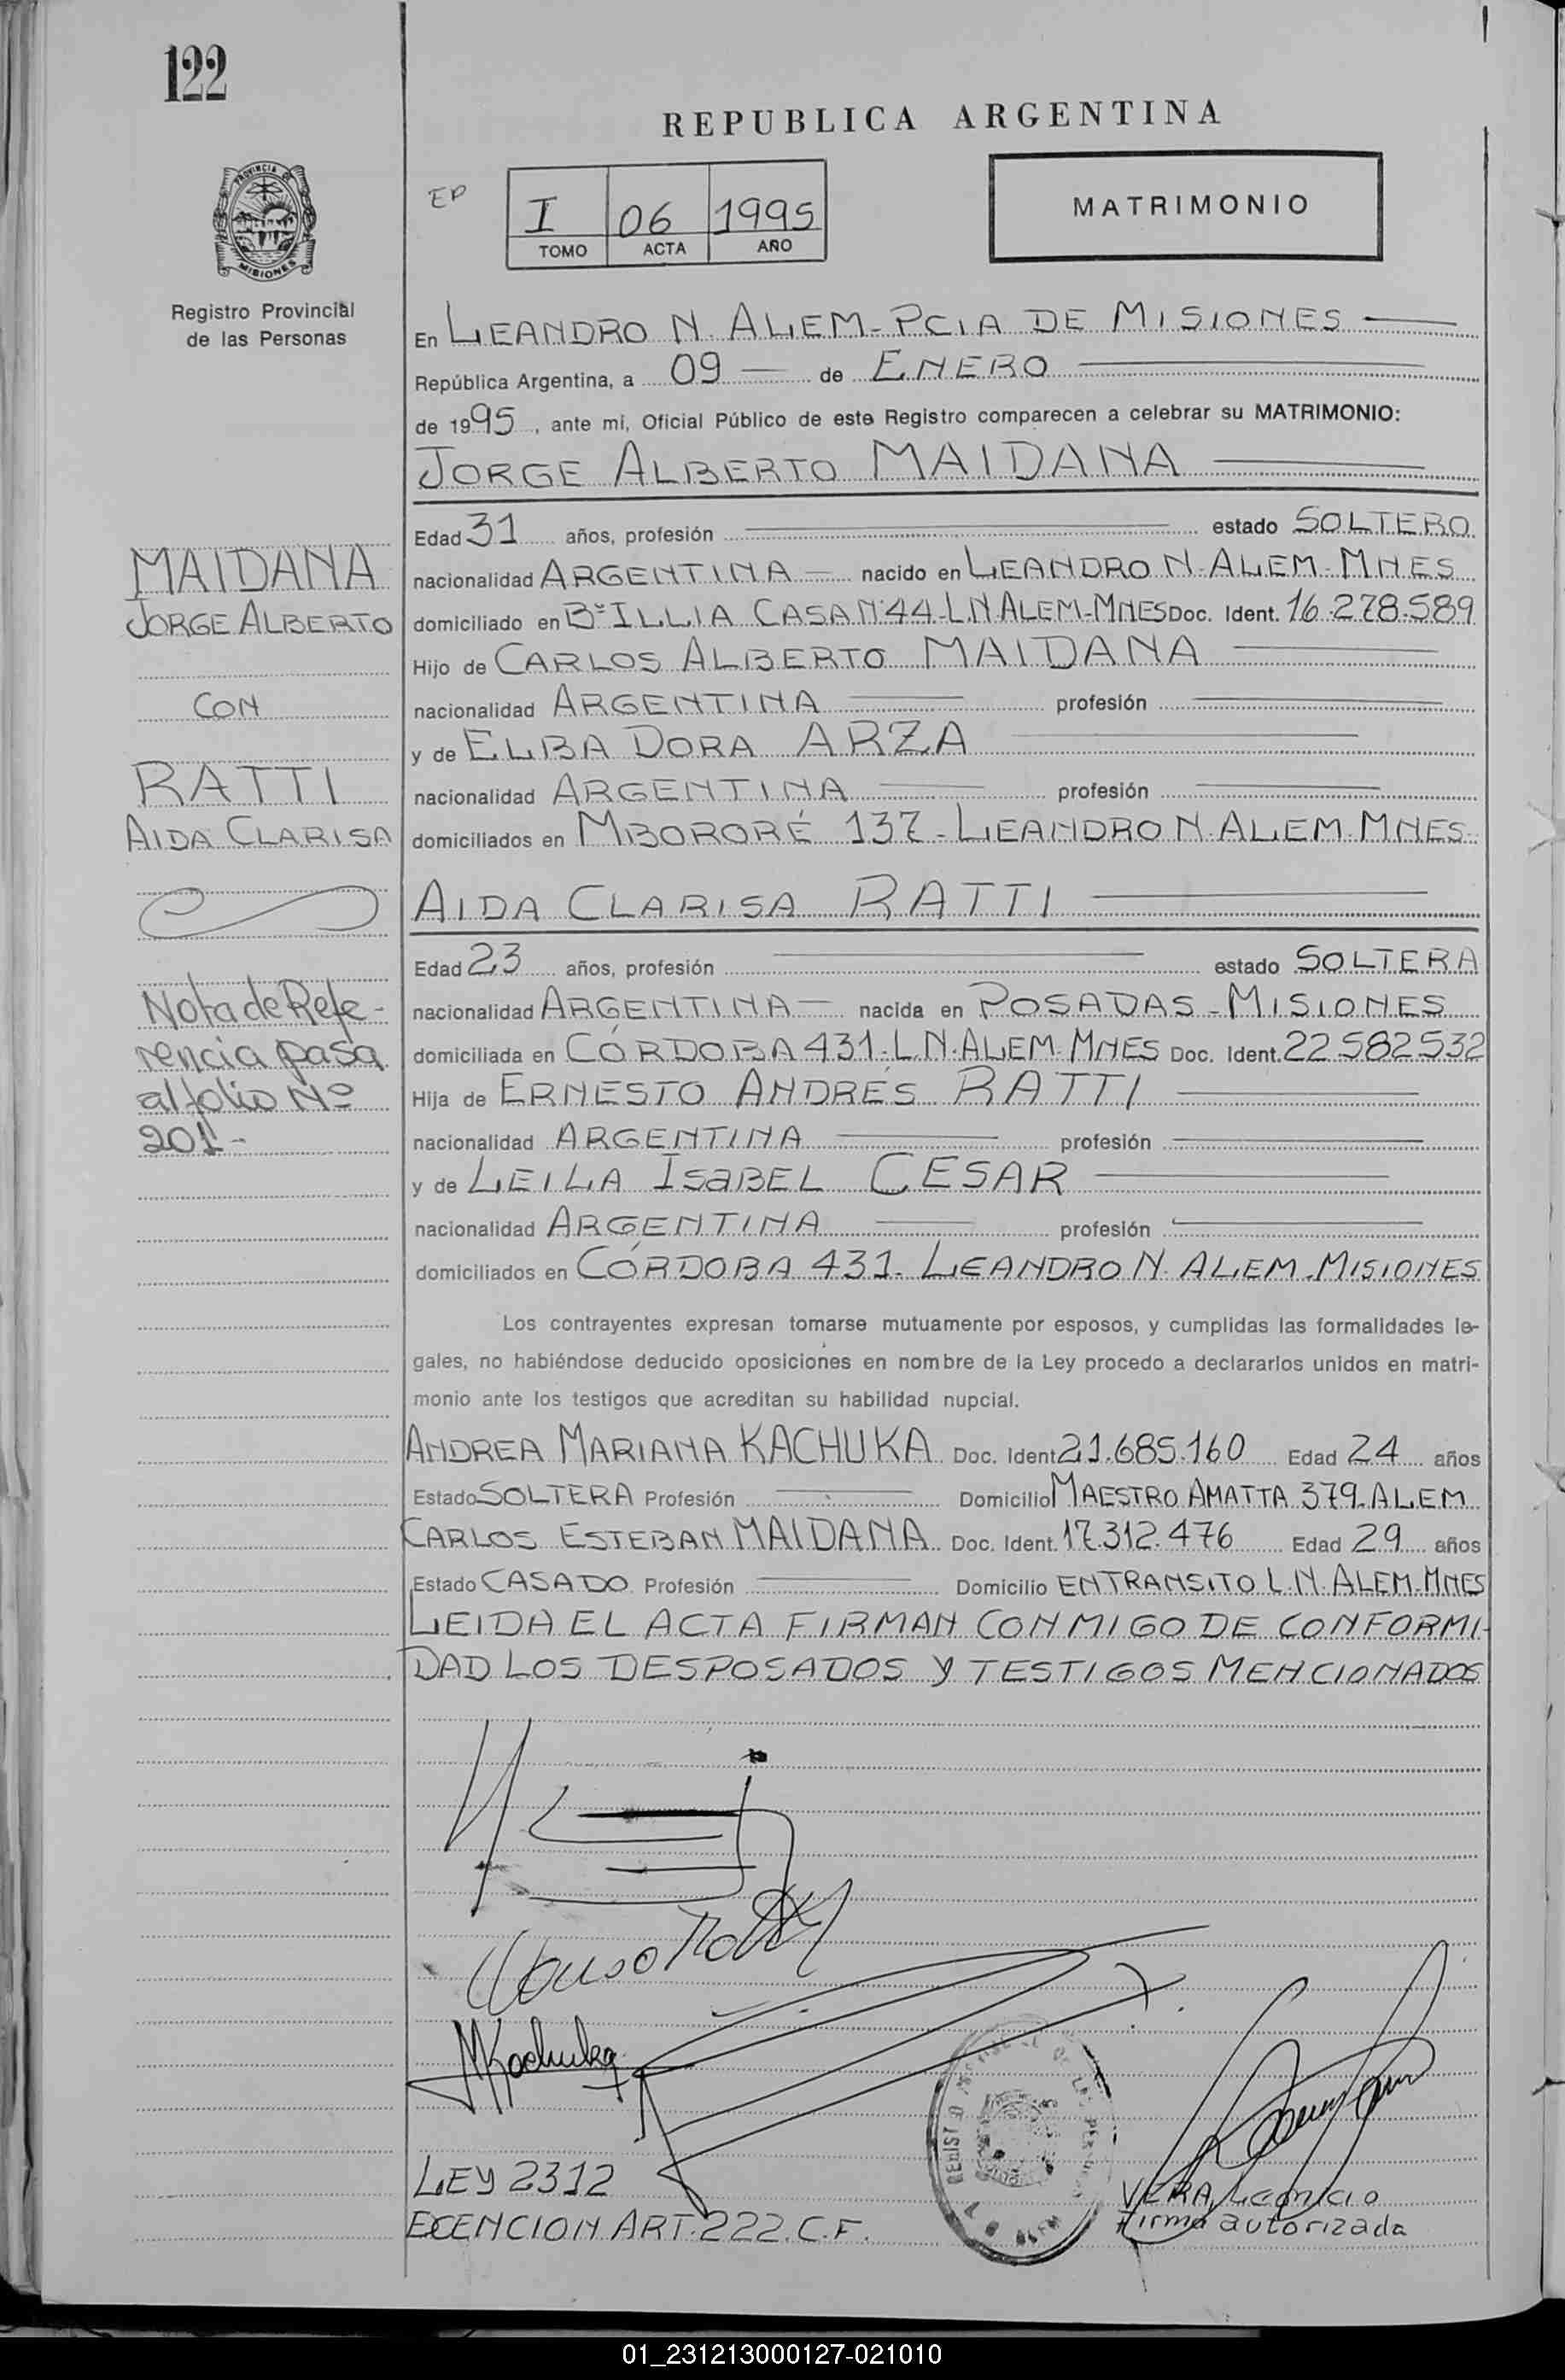 122
REPUBLICA ARGENTINA
PROVINCIA DE
MISIONES
Registro Provincial
de las Personas
EP
I 06 1995
TOMO ACTA AÑO
MATRIMONIO
En LEANDRO N. ALEM-PCIA DE MISIONES
República Argentina, a 09 de ENERO
de 1995, ante mi, Oficial Público de este Registro comparecen a celebrar su MATRIMONIO:
JORGE ALBERTO MAIDANA
Edad 31 años, profesión estado SOLTERO
nacionalidad ARGENTINA nacido en LEANDRO N. ALEM-MNES
domiciliado en Bº ILLIA CASA Nº44-L.N ALEM-MNES Doc. Ident. 16.278.589
Hijo de CARLOS ALBERTO MAIDANA
nacionalidad ARGENTINA profesión
y de ELBA DORA ARZA
nacionalidad ARGENTINA profesión
domiciliados en MBORORÉ 137-LEANDRO N. ALEM-MNES
AIDA CLARISA RATTI
Edad 23 años, profesión estado SOLTERA
nacionalidad ARGENTINA nacida en POSADAS-MISIONES
domiciliada en CÓRDOBA 431-L.N.ALEM-MNES Doc. Ident. 22.582.532
Hija de ERNESTO ANDRÉS RATTI
nacionalidad ARGENTINA profesión
y de LEILA ISaBEL CESAR
nacionalidad ARGENTINA profesión
domiciliados en CÓRDOBA 431-LEANDRO N. ALEM-MISIONES
MAIDANA
JORGE ALBERTO
CON
RATTI
AIDA CLARISA
Nota de Refe-
rencia pasa
al folio Nº
201-
Los contrayentes expresan tomarse mutuamente por esposos, y cumplidas las formalidades le-
gales, no habiéndose deducido oposiciones en nombre de la Ley procedo a declararlos unidos en matri-
monio ante los testigos que acreditan su habilidad nupcial.
ANDREA MARIANA KACHUKA Doc. Ident 21.685.160 Edad 24 años
Estado SOLTERA Profesión Domicilio MAESTRO AMATTA 379-ALEM
CARLOS ESTEBAN MAIDANA Doc. Ident. 17.312.476 Edad 29 años
Estado CASADO Profesión Domicilio EN TRANSITO L.N. ALEM-MNES
LEIDA EL ACTA FIRMAN CONMIGO DE CONFORMI-
DAD LOS DESPOSADOS Y TESTIGOS MENCIONADOS
MKachuka
LEY 2312
EXENCION ART. 222.C.F.
VERA, Leoncio
Firma autorizada
01_231213000127-021010